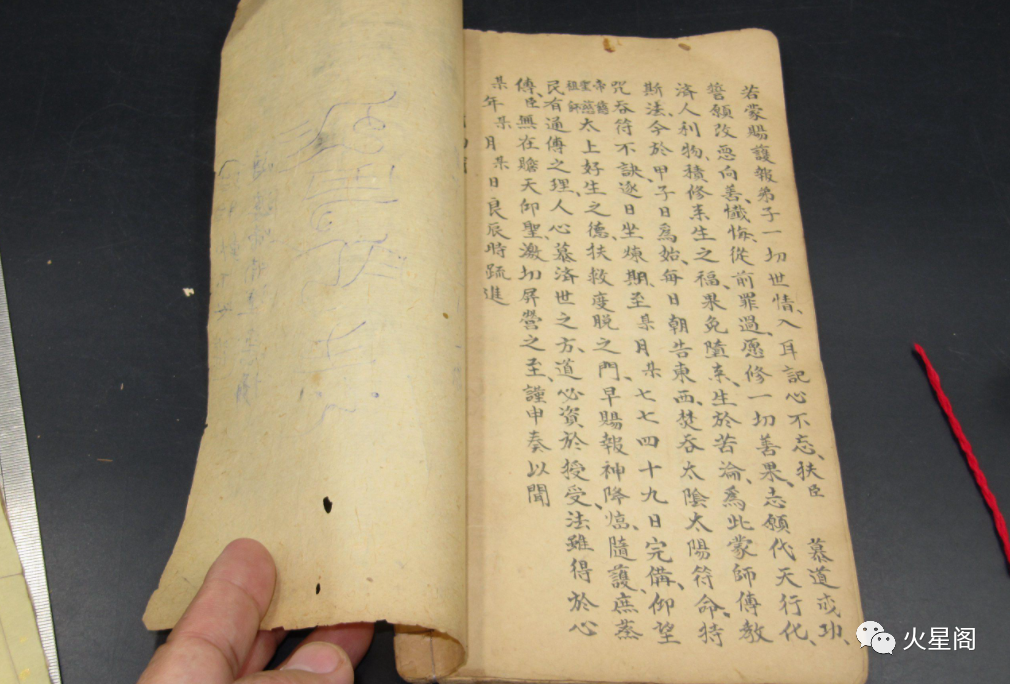 若蒙賜護報弟子一切世情、入耳記心不忘、扶臣 慕道戒功、
誓願改惡向善、懺悔、從前罪過、愿修一切善果、志願代天行化、
济人利物、積修来生之福、果免墮来、生於若淪、爲此蒙師傳教
斯法、今於甲子日爲始、每日朝告東西、焚吞太陰太陽符命、持
咒吞符不訣、逐日坐煉、期至某月某七七四十九日完備、仰望
帝慈聖慈祖師太上好生之德、扶救度脱之門、早賜報神降、隨護庶蒸
民有通傳之理、人心慕濟世之方、道必資於授受、法雖得於心
傳、臣無在瞻天仰聖激切屏營之至、謹申奏以聞
某年某月某日良辰時疏進
火星阁